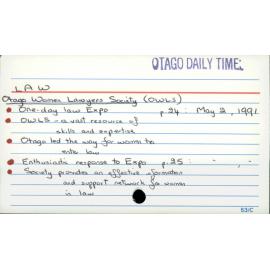 OTAGO DAILY TIMES
LAW
Otago Women Lawyers Society (OWLS)
• One-day law Expo p.24 : May 2, 1991
• OWLS - a vast resource of
skills and expertise
• Otago led the way for women to
enter law
• Enthusiastic response to Expo p.25 : " "
• Society provides an effective information
and support network for women
in law
531C